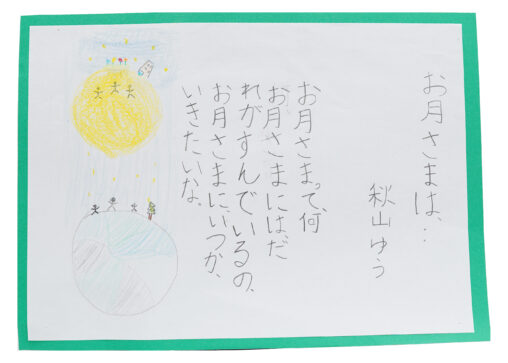 お月さまは、…
秋山ゆう
お月さまって、何
お月さまにはだ
れがすんでいるの、
お月さまに、いつか、
いきたいな、